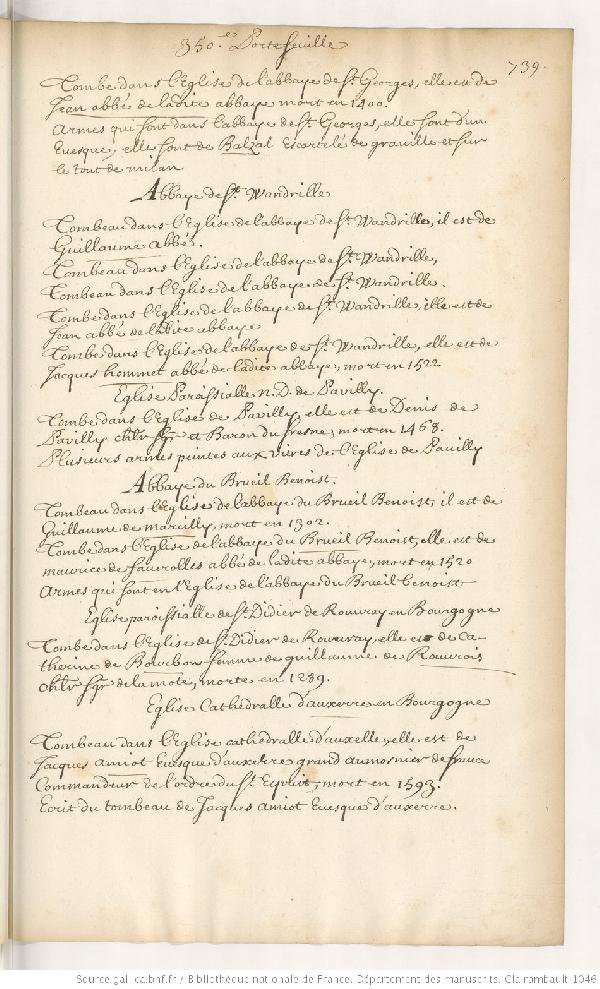 350.es Portefeuille
739.
Tombe dans l'Eglise de l'abbaye de St. Georges, elle est de
Jean abbé de ladite abbaye mort en 1400.
Armes qui sont dans l'abbaye de St. Georges, elle sont d'un
Euesque, elle sont de Balzal Escartelé de grauille et sur
le tout de milan
Abbaye de St. Wandrille
Tombeau dans l'Eglise de l'abbaye de St. Wandrille, il est de
Guillaume abbé.
Tombeau dans l'Eglise de l'abbaye de St. Wandrille,
Tombeau dans l'Eglise de l'abbaye de St. Wandrille.
Tombe dans l'Eglise de l'abbaye de St. Wandrille, elle est de
Jean abbé de ladite abbaye
Tombe dans l'Eglise de l'abbaye de St. Wandrille, elle est de
Jacques hommet abbé de ladite abbaye, mort en 1522
Eglise Paroissialle N.D. de Pavilly.
Tombe dans l'Eglise de Pavilly, elle est de Denis de
Pavilly chlr sgr et Baron du fresne, mort en 1468.
Plusieurs armes peintes aux vitres de l'Eglise de Pauilly
Abbaye du Brueil Benoist.
Tombeau dans l'Eglise de l'abbaye du Brueil Benoist, il est de
Guillaume de mareuilly, mort en 1302.
Tombe dans l'Eglise de l'abbaye du Brueil Benoist, elle est de
maurice de fauerolles abbé de ladite abbaye, mort en 1520
Armes qui sont en l'Eglise de l'abbaye du Brueil benoist
Eglise paroissialle de St. Didier de Rouuray en Bourgogne
Tombe dans l'Eglise de St. Didier de Rouuray, elle est de Ca-
therine de Bourbon femme de guillaume de Rouurois
chlr sgr de la mote, morte en 1289.
Eglise Cathedralle d'auxerre en Bourgogne
Tombeau dans l'Eglise cathedralle d'auxelle, elle est de
Jacques amiot Euesque d'auxerre grand aumosnier de france
Commandeur de l'ordre du St. Esprit, mort en 1593.
Ecrit du tombeau de Jacques amiot Euesque d'auxerre.
Source gallica.bnf.fr / Bibliothèque nationale de France. Département des manuscrits. Clairambault 1046